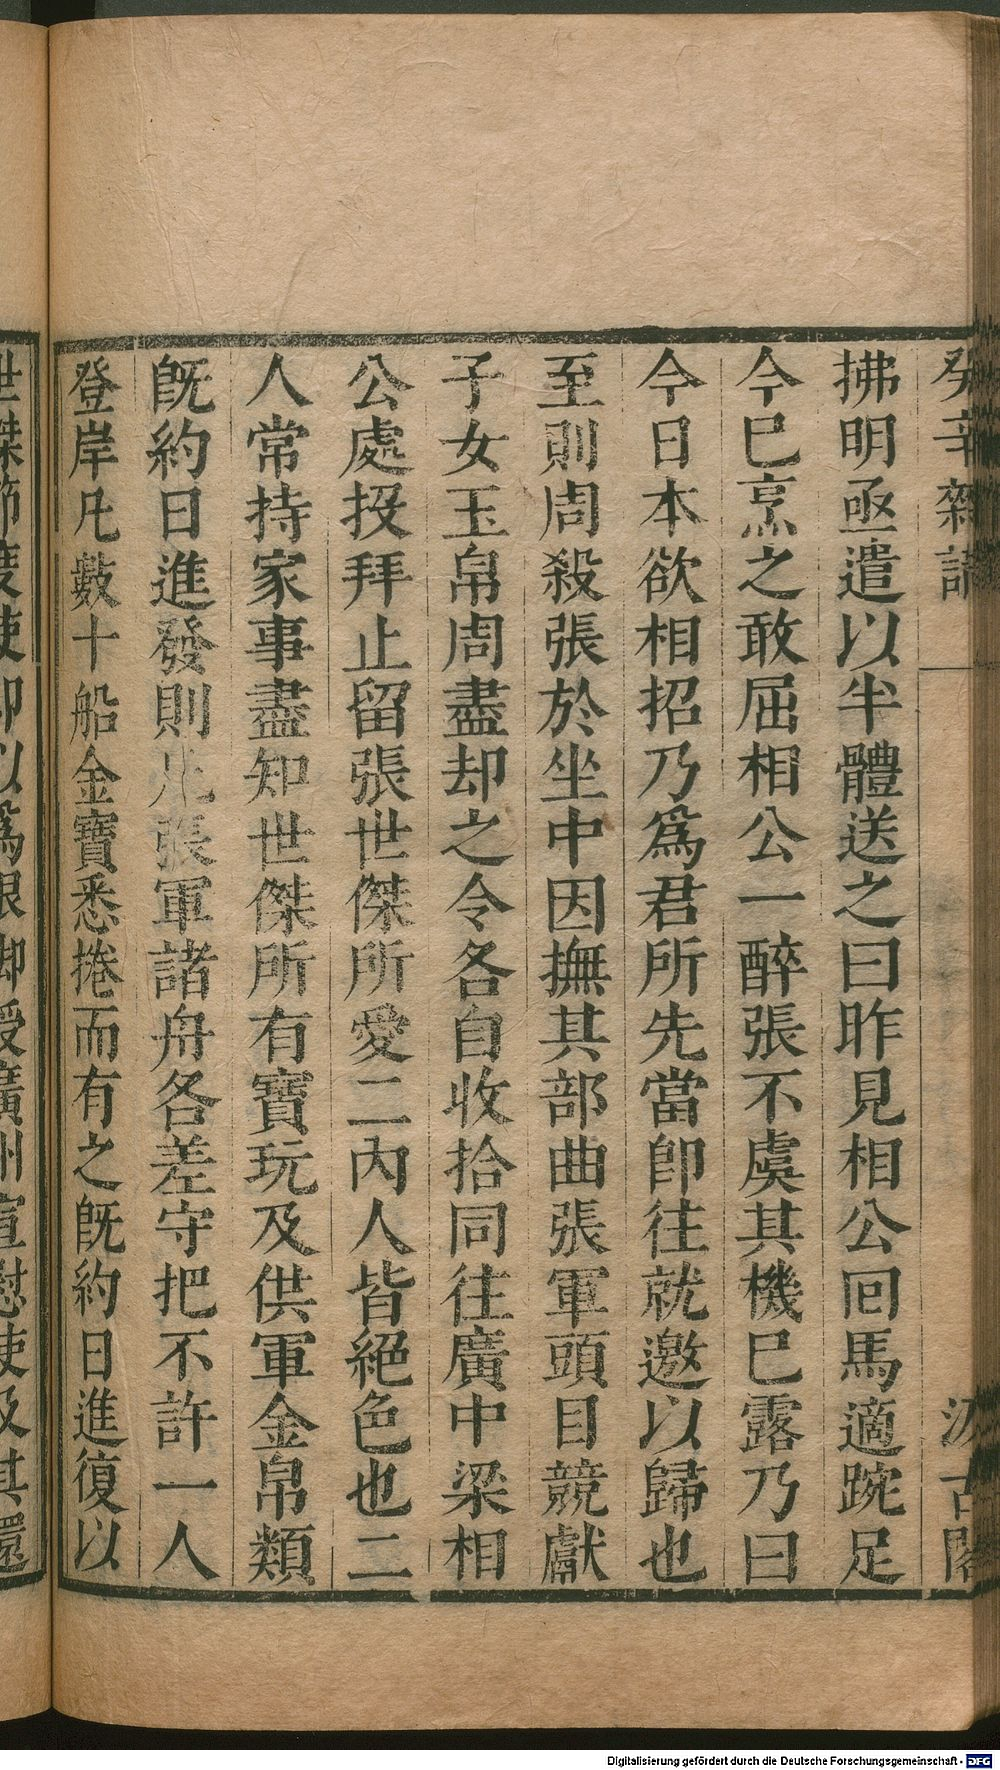 癸辛雜識
汲古閣
拂明亟遣以半體送之曰昨見相公回馬適踠足
今巳烹之敢屈相公一醉張不虞其機巳露乃曰
今日本欲相招乃爲君所先當卽往就邀以歸也
至則周殺張於坐中因撫其部曲張軍頭目競獻
子女玉帛周盡却之令各自收拾同往廣中梁相
公處投拜止留張世傑所愛二內人皆絕色也二
人常持家事盡知世傑所有寶玩及供軍金帛類
旣約日進發則張軍諸舟各差守把不許一人
登岸凡數十船金寶悉捲而有之旣約日進復以
世傑節度使印以爲根脚授廣州宣慰使及其還
Digitalisierung gefördert durch die Deutsche Forschungsgemeinschaft - DFG